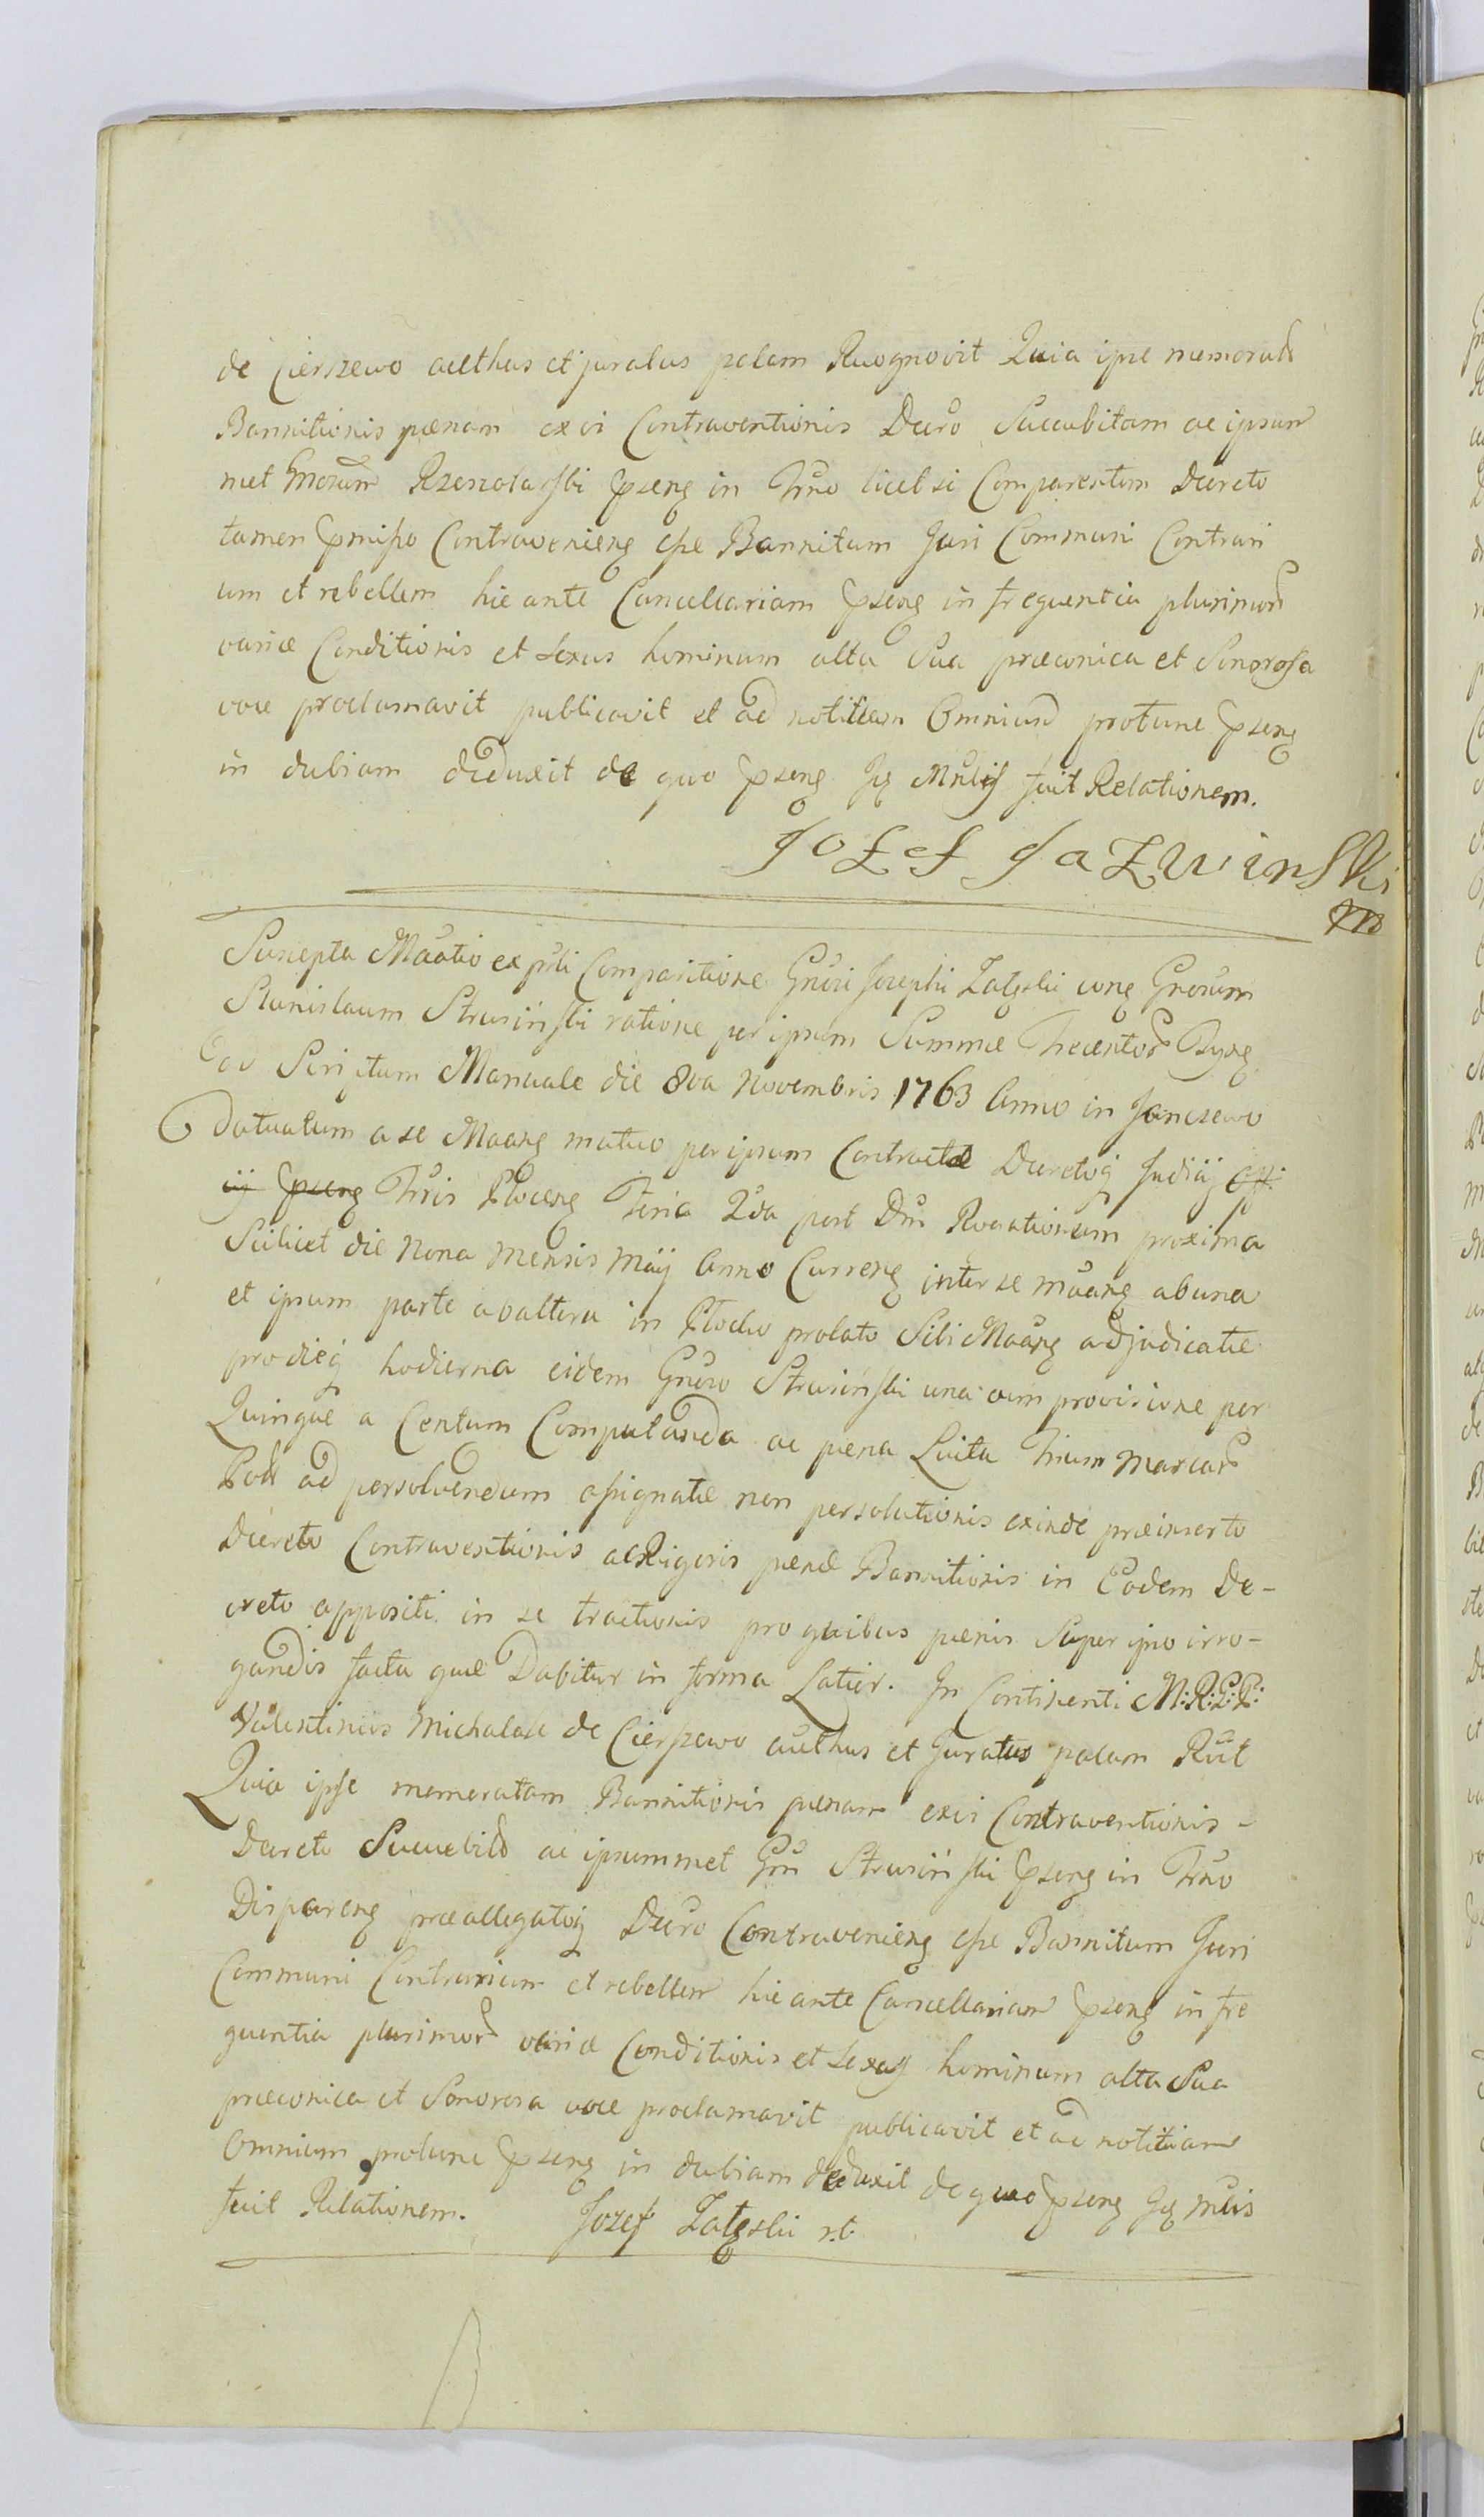 de Cierszewo aucthus et juratus palam Recognovit Quia ipse memoratã
Bannitionis pænam ex vi Contraventionis Decro Succubitam ac ipsum
met Gnosum Rzeszotarski pseng in Trno licet se Comparentem Decreto
tamen pmisso Contravenieng esse Bannitum Juri Communi Contrari
um et rebellem hic ante Cancellariam pseng in frequentia plurimorũ
variæ Conditionis et sexus hominum alta Sua præconica et Sonorosa
voce proclamavit publicavit et ad notitiam Omnium protunc pseng
in dubiam deduxit de quo pseng Jg Mnlis fecit Relationem.
Jozef Jazwinski
mp
Suscepta Maatio ex psti Comparitione Gnosi Josephi Zalęski cong Gnosum
Stanislaum Strusiński ratione per ipsum Summæ Trecentoȝ Tyng
ad Scriptum Manuale die 8va Novembris 1763 Anno in Janczewo
Datuatum a se Maang mutuo per ipsum Contractæ Decretoq Judicij Off:
ij pseng Trris Ploceng Feria 2da post Dm Rogationum proxima
Scilicet die Nona Mensis Maij Anno Curreng inter se maang ab una
et ipsum parte ab altera in Plocko prolato Sibi Maang adjudicatæ
pro dieq hodierna eidem Gnoso Strusiński una cum provisione per
Quinque a Centum Computanda ac pæna Luita Trium Marcarȝ
Poll ad persolvendum assignatæ non persolutionis exinde præinserto
Decreto Contraventionis ac Rigoris pænæ Bannitionis in Eodem De-
creto appositi in se tractionis pro quibus pænis Super ipso irro-
gandis facta quæ Dabitur in forma Latior. In Continenti M:R:G:P:
Valentinus Michalak de Cierszewo aucthus et Juratus palam Rcut
Quia ipse memoratam Bannitionis pænam ex vi Contraventionis -
Decreto Succubitã ac ipsummet Gm Strusiński pseng in Trno
Dispareng præallegatoq Decro Contravenieng esse Bannitum Juri
Communi Contrarium et rebellem hic ante Cancellariam pseng in fre
quentia plurimorȝ variæ Conditionis et sexus hominum alta Sua
præconica et Sonorosa voce proclamavit publicavit et ad notitiam
Omnium protunc pseng in dubiam deduxit de quo pseng Jg Mlis
fecit Relationem. Jozef Zalęski